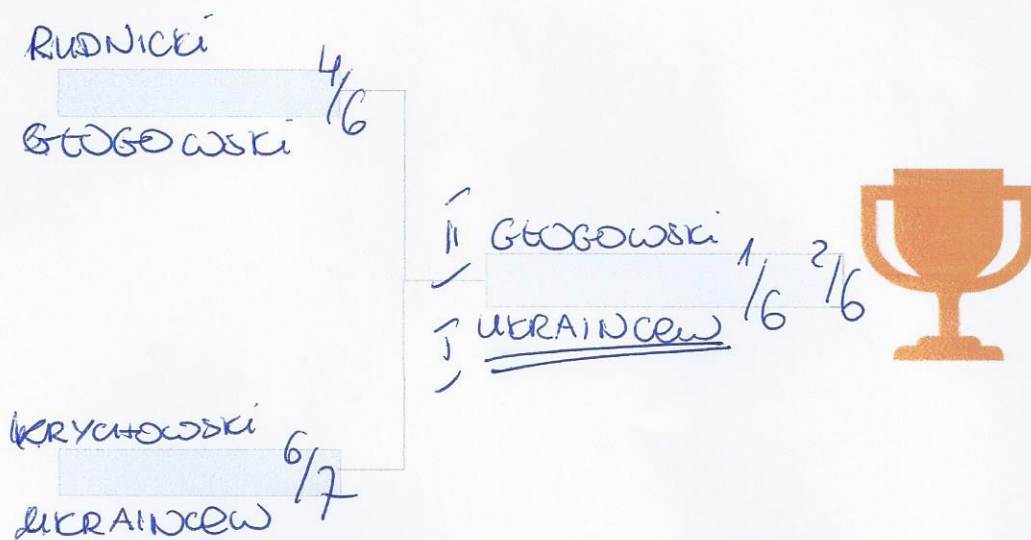 RUDNICKI
4/6
GŁOGOWSKI
II GŁOGOWSKI
1/6 2/6
I UKRAINCEW
KRYCHOWSKI
6/7
UKRAINCEW